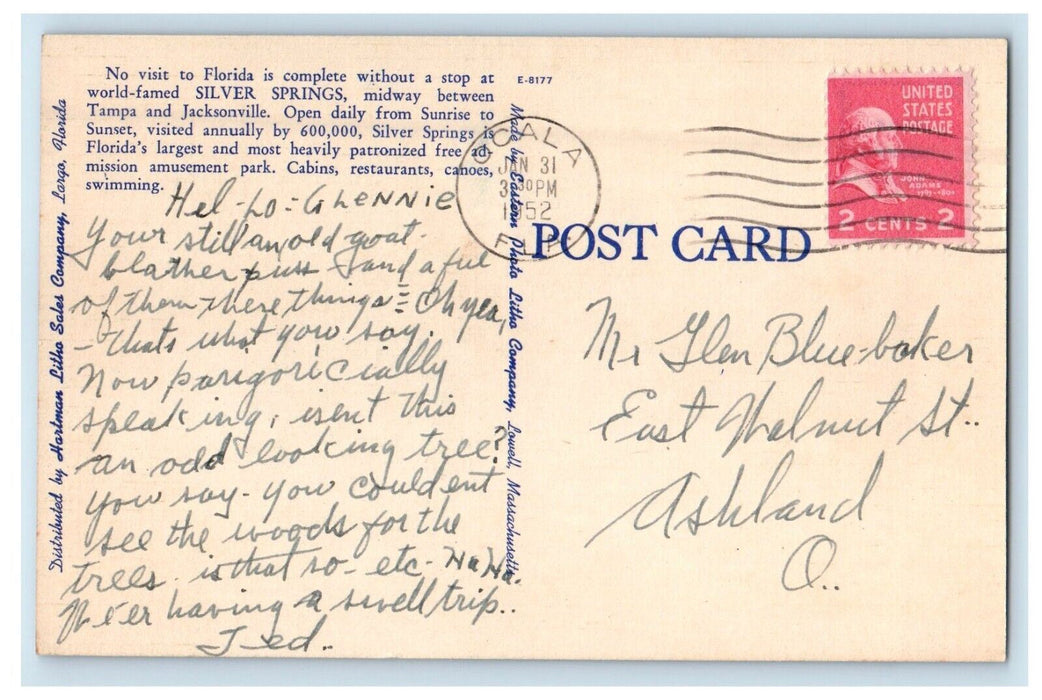 No visit to Florida is complete without a stop at
world-famed SILVER SPRINGS, midway between
Tampa and Jacksonville. Open daily from Sunrise to
Sunset, visited annually by 600,000, Silver Springs is
Florida's largest and most heavily patronized free ad-
mission amusement park. Cabins, restaurants, canoes,
swimming.
E-8177
Distributed by Hartman Litho Sales Company, Largo, Florida
Made by Eastern Photo Litho Company, Lowell, Massachusetts
OCALA
JAN 31
3 30 PM
1952
FLA
UNITED
STATES
POSTAGE
JOHN
ADAMS
2 CENTS 2
POST CARD
Hel-Lo-GLENNIE
Your still an old goat-
blather puss and a ful
of them there things = Oh yea,
- thats what you say.
Now parigoricially
speaking, isent this
an odd looking tree?
You say - you couldent
see the woods for the
trees. is that so - etc - Ha Ha.
We'er having a swell trip..
Ted.
Mr Glen Blue-baker
East Walnut St..
Ashland
O..